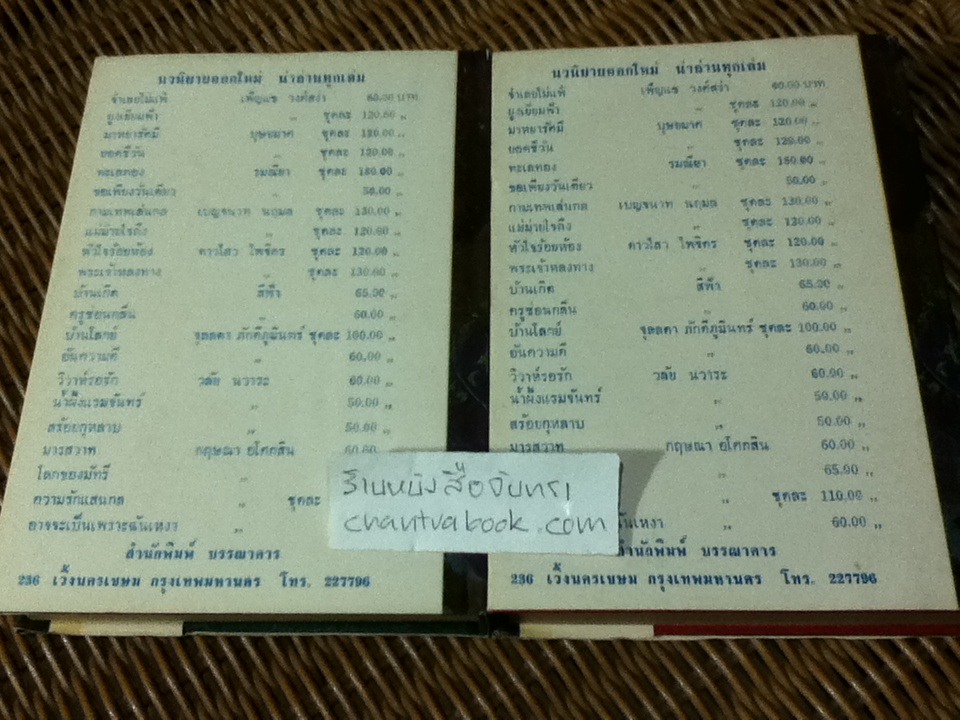 นวนิยายออกใหม่ น่าอ่านทุกเล่ม
จำเลยไม่แพ้ เพ็ญแข วงศ์สง่า 60.00 บาท
ยูงเยี่ยมฟ้า " ชุดละ 120.00 "
มาทยารัศมี บุษยมาศ ชุดละ 120.00 "
ยอดชีวัน " ชุดละ 120.00 "
ทะเลทอง รมณียา ชุดละ 180.00 "
ขอเพียงวันเดียว " 50.00 "
กามเทพเล่นกล เบญจนาท นฤมล ชุดละ 130.00 "
แม่ม่ายใจถึง " ชุดละ 120.00 "
หัวใจร้อยห้อง ดาวไสว ไพจิตร ชุดละ 120.00 "
พระเจ้าหลงทาง " ชุดละ 130.00 "
บ้านเกิด สีฟ้า 65.00 "
ครูซ่อนกลิ่น " 60.00 "
บ้านโลกย์ จุลลดา ภักดีภูมินทร์ ชุดละ 100.00 "
อันความดี " 60.00 "
วิวาห์รอรัก วลัย นวาระ 60.00 "
น้ำผึ้งแรมจันทร์ " 50.00 "
สร้อยกุหลาบ " 50.00 "
มารสวาท กฤษณา อโศกสิน 60.00
โลกของมัทรี
ความรักแสนกล " ชุดละ
อาจจะเป็นเพราะฉันเหงา "
สำนักพิมพ์ บรรณาคาร
236 เวิ้งนครเขษม กรุงเทพมหานคร โทร. 227796
นวนิยายออกใหม่ น่าอ่านทุกเล่ม
จำเลยไม่แพ้ เพ็ญแข วงศ์สง่า 60.00 บาท
ยูงเยี่ยมฟ้า " ชุดละ 120.00 "
มาทยารัศมี บุษยมาศ ชุดละ 120.00 "
ยอดชีวัน " ชุดละ 120.00 "
ทะเลทอง รมณียา ชุดละ 180.00 "
ขอเพียงวันเดียว " 50.00 "
กามเทพเล่นกล เบญจนาท นฤมล ชุดละ 130.00 "
แม่ม่ายใจถึง " ชุดละ 120.00 "
หัวใจร้อยห้อง ดาวไสว ไพจิตร ชุดละ 120.00 "
พระเจ้าหลงทาง " ชุดละ 130.00 "
บ้านเกิด สีฟ้า 65.00 "
ครูซ่อนกลิ่น " 60.00 "
บ้านโลกย์ จุลลดา ภักดีภูมินทร์ ชุดละ 100.00 "
อันความดี " 60.00 "
วิวาห์รอรัก วลัย นวาระ 60.00 "
น้ำผึ้งแรมจันทร์ " 50.00 "
สร้อยกุหลาบ " 50.00 "
มารสวาท กฤษณา อโศกสิน 60.00 "
65.00 "
" ชุดละ 110.00 "
ฉันเหงา " 60.00 "
สำนักพิมพ์ บรรณาคาร
236 เวิ้งนครเขษม กรุงเทพมหานคร โทร. 227796
ร้านหนังสือจันทรา
chantrabook.com